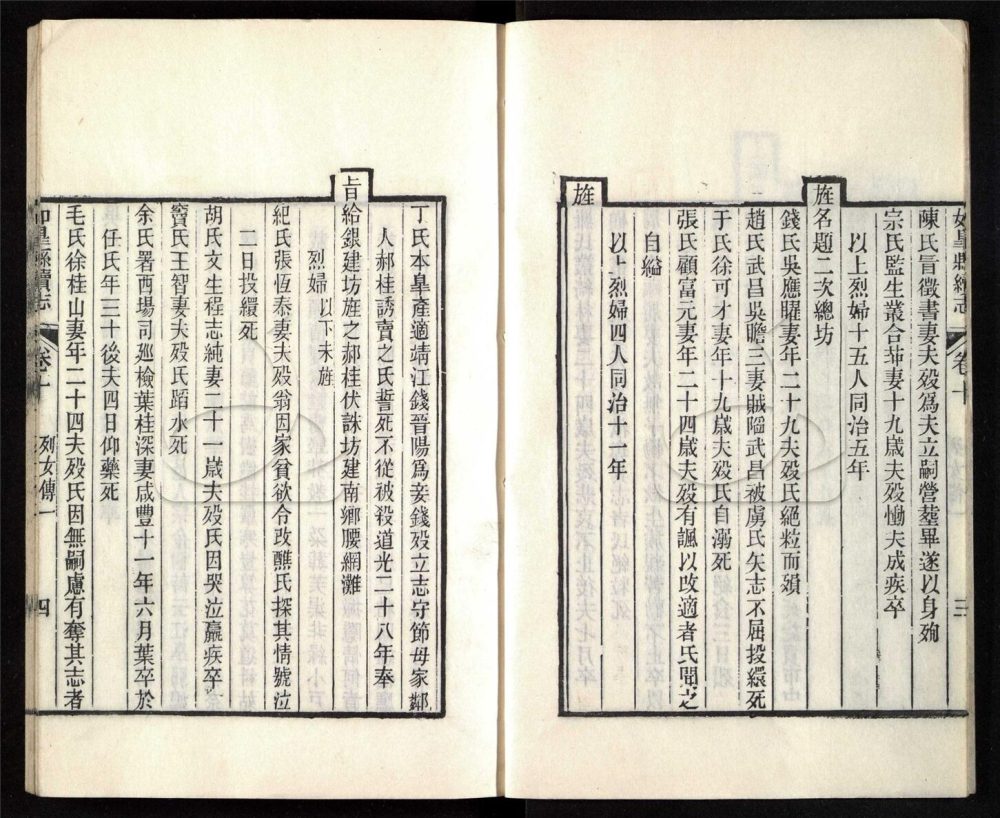 如皋縣續志
卷十
三
陳氏冒徵書妻夫歿爲夫立嗣營葬畢遂以身殉
宗氏監生叢合茆妻十九歲夫歿慟夫成疾卒
以上烈婦十五人同治五年
旌
名題二次總坊
錢氏吳應曜妻年二十九夫歿氏絕粒而殞
趙氏武昌吳瞻三妻賊陷武昌被虜氏矢志不屈投繯死
于氏徐可才妻年十九歲夫歿氏自溺死
張氏顧富元妻年二十四歲夫歿有諷以改適者氏聞之
自縊
以上烈婦四人同治十一年
旌
丁氏本皋產適靖江錢晉陽爲妾錢歿立志守節母家鄰
人郝桂誘賣之氏誓死不從被殺道光二十八年奉
旨給銀建坊旌之郝桂伏誅坊建南鄉腰網灘
烈婦 以下未旌
紀氏張恆泰妻夫歿翁因家貧欲令改醮氏探其情號泣
二日投繯死
胡氏文生程志純妻二十一歲夫歿氏因哭泣羸疾卒
竇氏王智妻夫歿氏蹈水死
余氏署西場司廵檢葉桂深妻咸豐十一年六月葉卒於
任氏年三十後夫四日仰藥死
毛氏徐桂山妻年二十四夫歿氏因無嗣慮有奪其志者
如皋縣續志
卷十
列女傳一
四